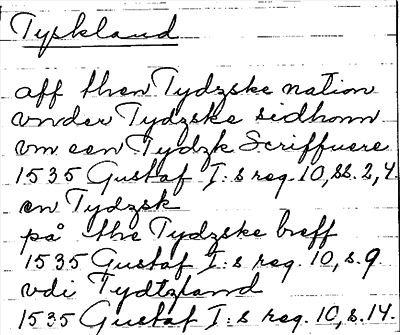 Tyskland
aff then Tydzske nation
vnder Tydzske sidhom
vm een Tydzk Scriffuere
1535 Gustaf I:s reg. 10, ss. 2, 4.
en Tydzsk
på the Tydzske breff
1535 Gustaf I:s reg. 10, s. 9.
vdi Tydtzland
1535 Gustaf I:s reg. 10, s. 14.